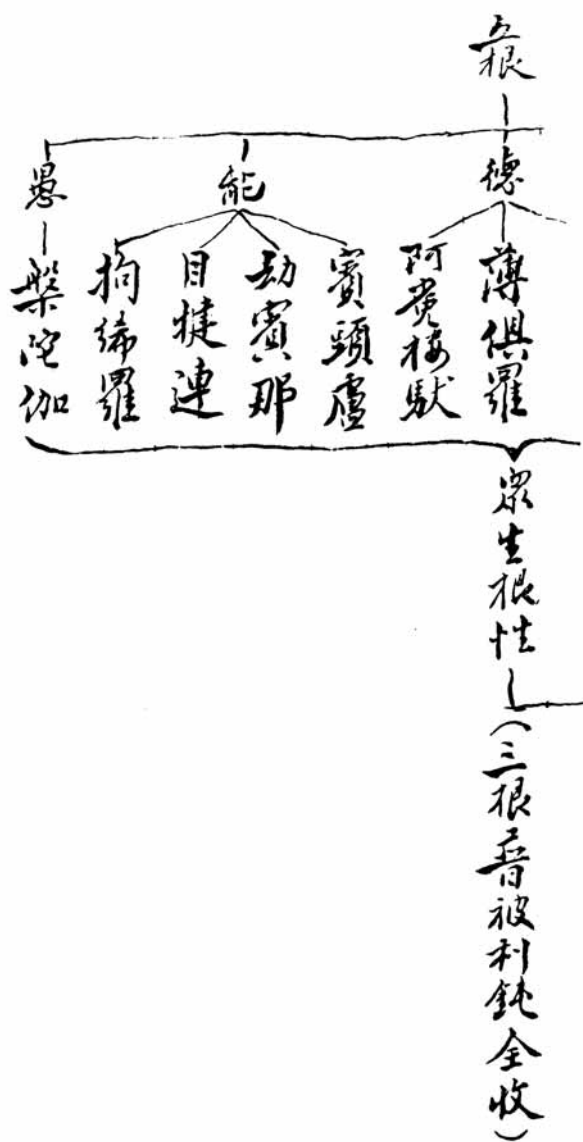 五根
德
薄俱羅
阿㝹樓馱
能
賓頭盧
劫賓那
目揵連
拘絺羅
愚
槃陀伽
眾生根性
（三根普被利鈍全收）